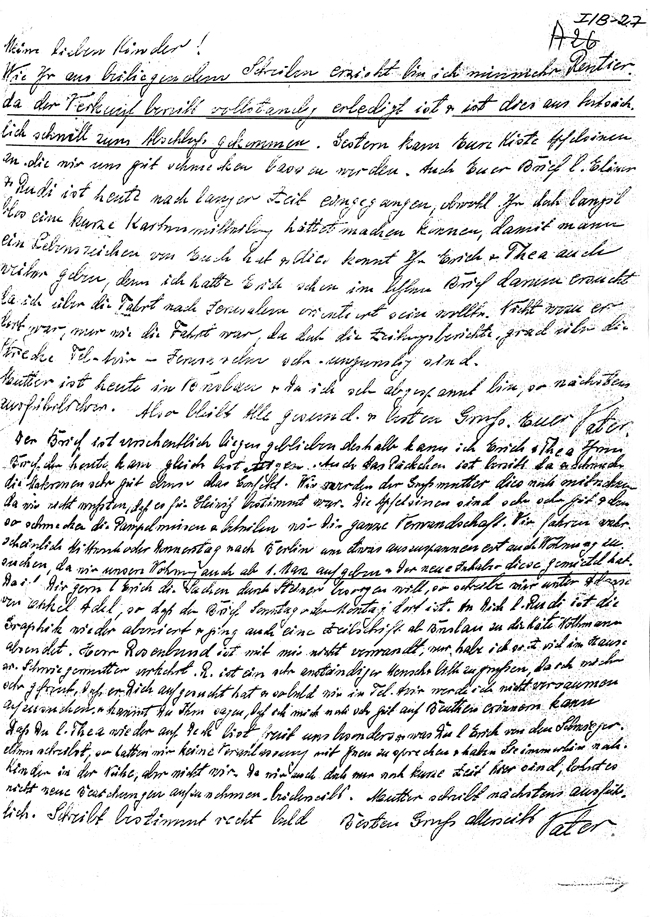 I/8-27
A 26
Meine lieben Kinder!
Wie Ihr aus beiliegendem Schreiben ersieht bin ich nunmehr Rentier.
da der Verkauf bereits vollständig erledigt ist & ist dies aus tatsäch
lich schnell zum Abschluss gekommen. Gestern kam Eure Kiste Apfelsinen
an die wir uns gut schmecken lassen werden. Auch Euer Brief l.
& Rudi ist heute nach langer Zeit eingegangen, obwohl Ihr doch längst
blos eine kurze Kartenmitteilung hättet machen können, damit mann
ein Lebenszeichen von Euch hat & dies könnt Ihr Erich & Thea auch
weiter geben, denn ich hatte Erich schon im letzten Brief darum ersucht
da ich über die Fahrt nach Jerusalem orientiert sein wollte. Nicht wenn er
dort war, nur wie die Fahrt war, da doch die Zeitungsberichte grad über die
Strecke Tel-Aviv - Jerusalem sehr ungünstig sind.
Mutter ist heute in & da ich sehr abgespannt bin, so nächstens
ausführlicher. Also bleibt Alle gesund & besten Gruss. Euer Vater.
Der Brief ist versehentlich liegen geblieben deshalb kann ich Erich & Thea Ihren
Brief der heute kam gleich bestätigen. Auch das Päckchen ist bereits da &
die Makronen sehr gut ebenso das Konfekt. Wir werden der Grossmutter dies noch mitnehmen
da wir nicht wussten, dass es für bestimmt war. Die Apfelsinen sind sehr sehr gut &
so schmecken die Pampelmusen & beteilen wir die ganze Verwandschaft. Wir fahren wahr
scheinlich Mittwoch oder Donnerstag nach Berlin um etwas auszuspannen erst auch Wohnung zu
suchen, da wir unsere Wohnung auch ab 1. März aufgeben & der neue Inhaber diese gemietet hat.
Da l. Erich die Sachen durch Steiner besorgen will, so schreibe mir unter Adresse
von Onkel Adol, so dass der Brief Sonntag oder Montag dort ist. An Dich l. Rudi ist die
Graphik wieder aboniert & ging auch eine Zeitschrift ab Breslau zu die hatte Nothmann
absendet. Herr Rosenbund ist mit mir nicht verwandt, nur habe ich s. Zt viel im Hause
sr. Schwiegermutter verkehrt. R. ist ein sehr anständiger Mensch & bitte zu grüssen, da ich mich
sehr freut, dass er Dich aufgesucht hat & sobald wir in Tel-Aviv werde ich nicht versäumen
aufzusuchen & kannst Du Ihm sagen, dass ich mich noch sehr gut auf Beuthen erinnern kann
Dass Du l. Thea wieder auf Deck bist freut uns besonders & was Du l Erich von den Schwieger-
eltern schreibst, so hatten wir keine Veranlassung mit Ihnen zu sprechen & haben Sie immerhin noch
Kinder in der Nähe, aber nicht wir. Da wir auch doch nur noch kurze Zeit hier sind, lohnt es
nicht neue Beziehungen aufzunehmen beiderseits. Mutter schreibt nächstens ausführ-
lich. Schreibt bestimmt recht bald Besten Gruss allerseits Vater.